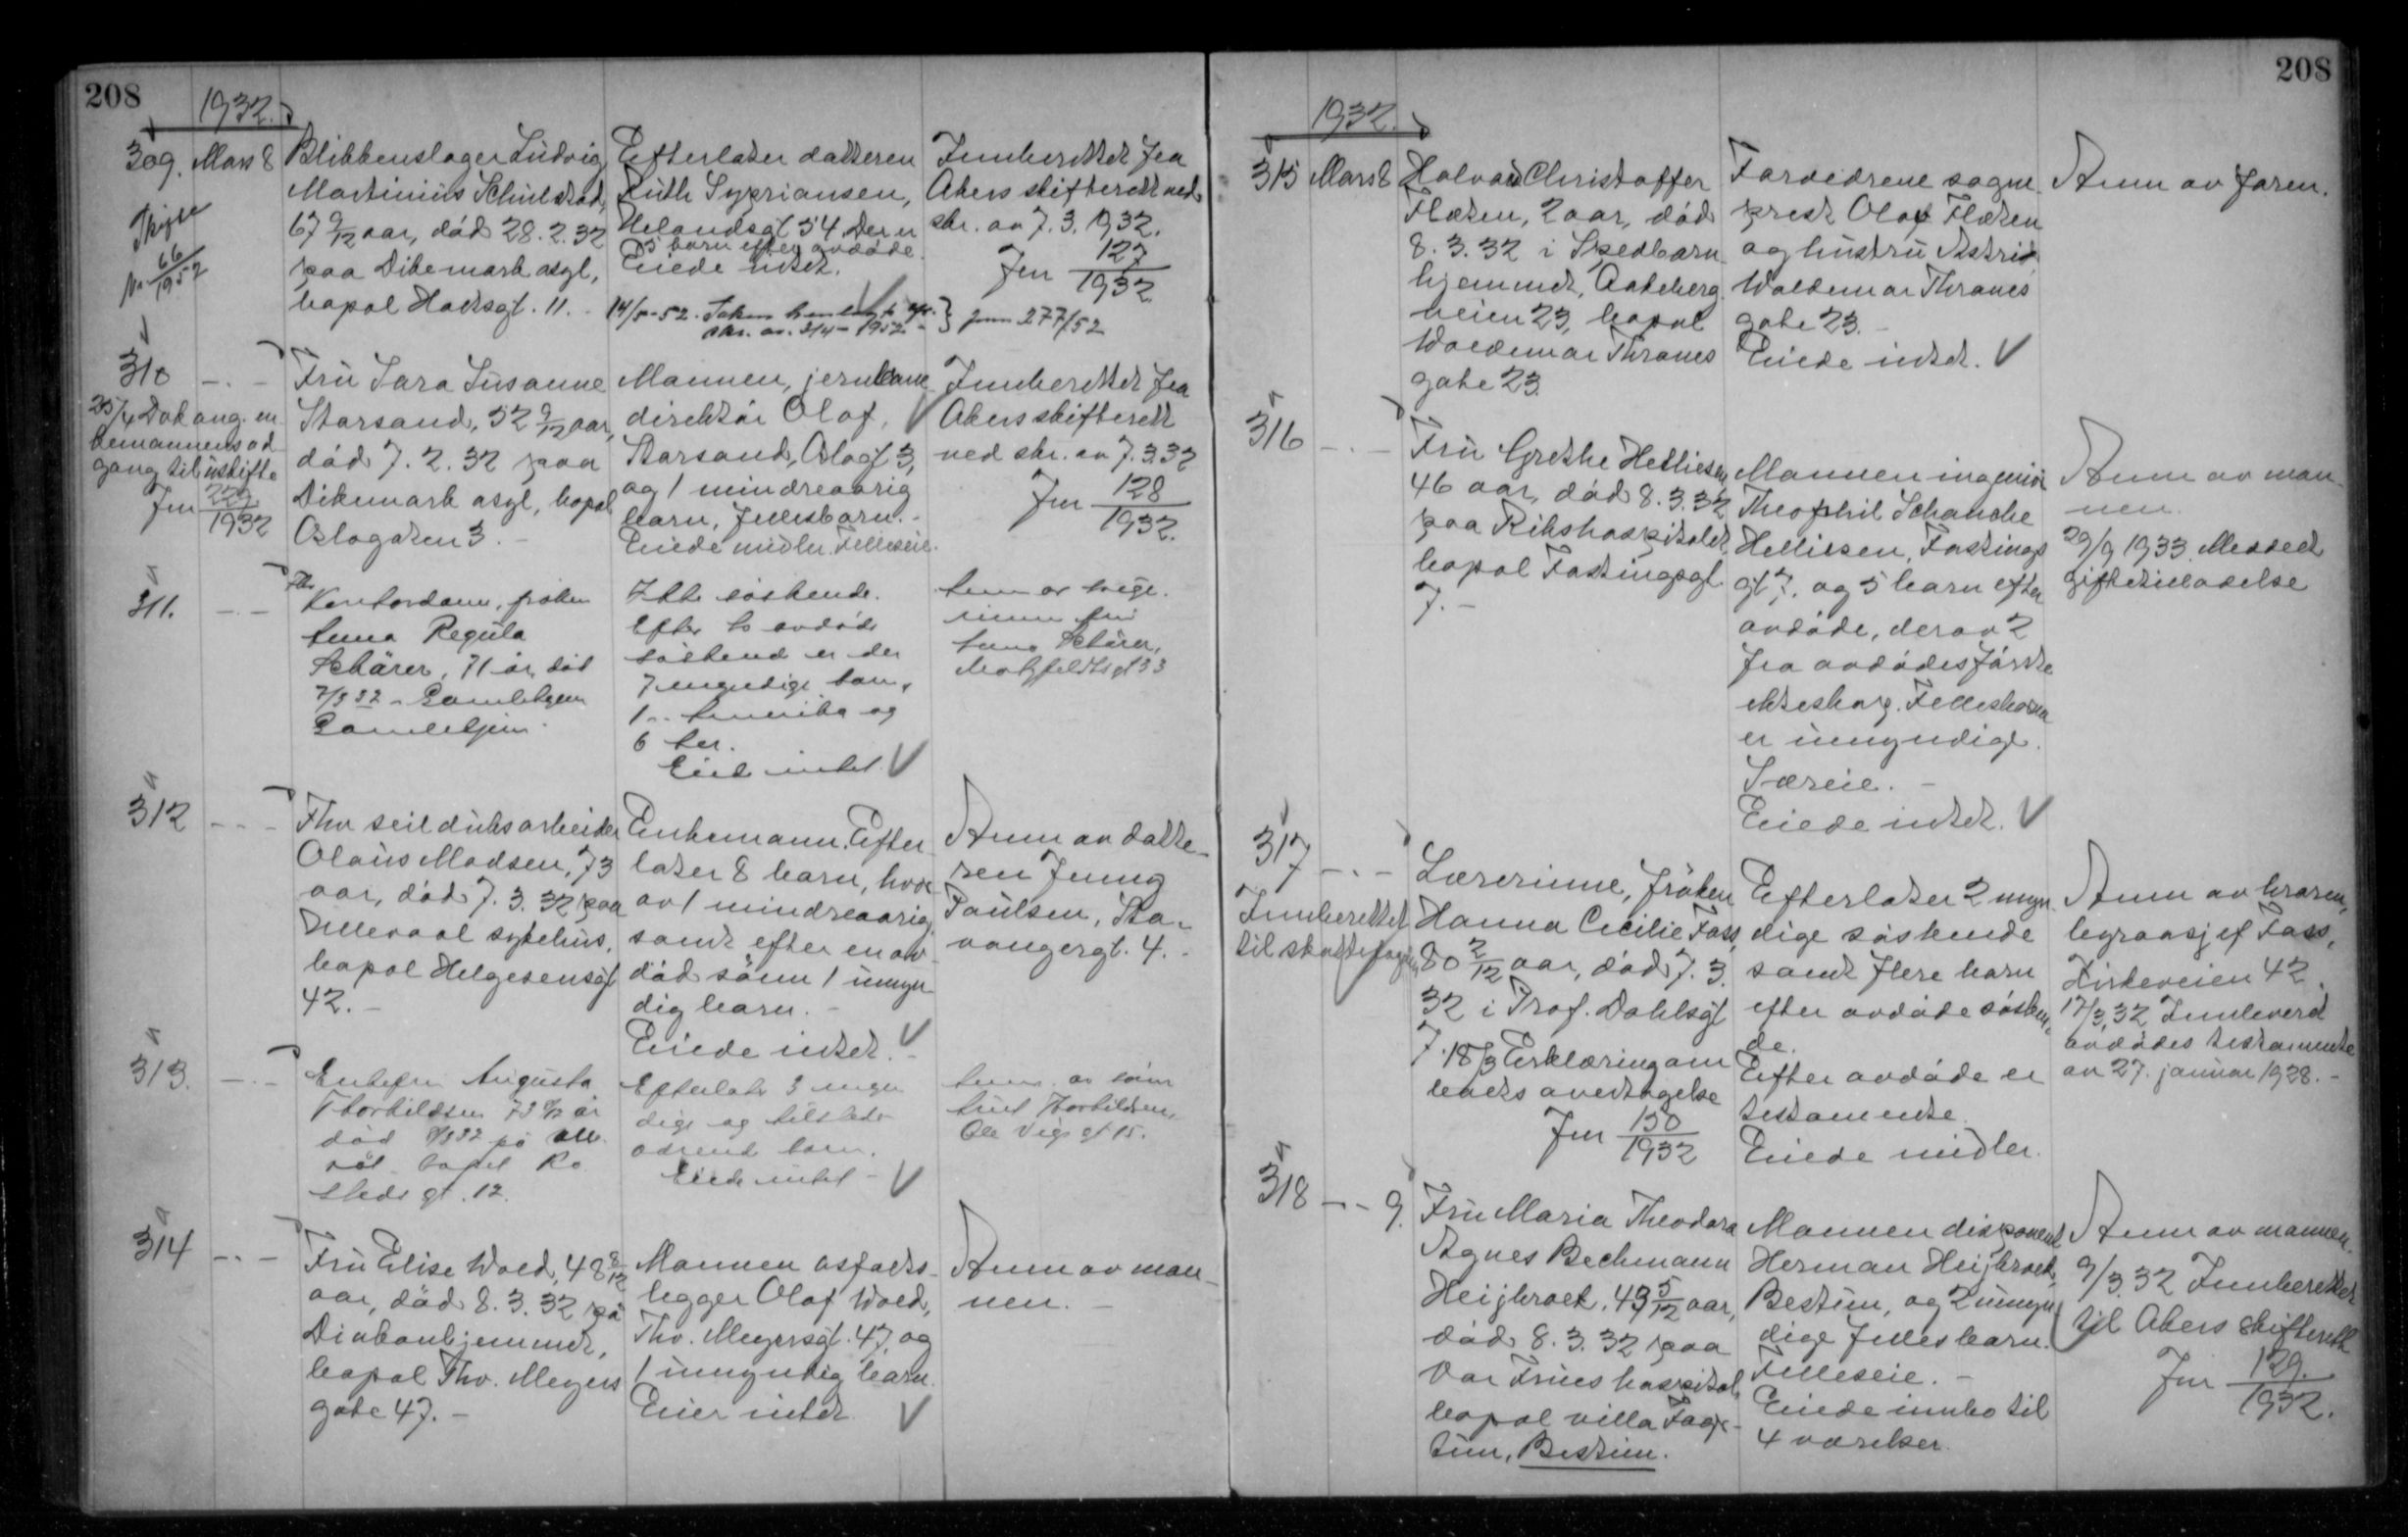 208
1932.
309. Mars 8
Blikkenslager Ludvig
Martinius Schulstad,
67 9/12 aar, død 28.2.32
paa Dikemark asyl,
bopal Hadsgt. 11.
Efterlater datteren
Ruth Sypriansen,
Helandsgt 54. Der er
5 barn efter avdøde.
Eiede intet.
14/5-52.
Innberettet fra
Akers skifterett ved
skr. av 7.3.1932.
Jnr 127/1932
jnr 277/52
66/1952
310 - . -
25/4 Dok ang. en
kemannens ad
gang til uskifte
Jnr 229/1932
Fru Sara Susanne
Storsand, 52 9/12 aar,
død 7.2.32 paa
Dikemark asyl, bopal
Oslogaten 3. -
Mannen, jernbane
direktør Olaf
Storsand, Oslogt 3,
og 1 mindreaarig
barn, fellesbarn. -
Eiede midler. Felleseie.
Innberettet fra
Akers skifterett
ved skr. av 7.3.32
Jnr 128/1932.
311. - . -
Kontordame, frøken
Anna Regula
Schärer, 71 år, død
7/3 32 - Gamlehjem
Gamlehjem.
Ikke søskende.
Efter to avdøde
søskend er der
7 myndige barn,
1 i Amerika og
6 her.
Eied intet
Anna Schärer,
Motzfeldtsgt 33
312 - . -
Fhv seilduksarbeider
Olaus Madsen, 73
aar, død 7.3.32 paa
Ullevaal sykehus,
bopal Helgesensgt
42. -
Enkemann. Efter
later 8 barn, hvor
av 1 mindreaarig
samt efter en av
død sønn 1 umyn
dig barn. -
Eiede intet. -
Anm av datte-
ren Jenny
Paulsen, Sta-
vangergt. 4. -
313. - . -
Enkefru Augusta
Thorkildsen
død 8/3 32 på Ulle
vål bopel Ro
steds gt. 12.
Efterlater 3 myn
dige og tilstede
værende barn.
Eiede intet -
Anm. av sønn
Thorkildsen,
Ole Vigs gt 15.
314 - . -
Fru Elise Wold, 48 8/12
aar, død 8.3.32 på
Diakonhjemmet,
bopal Thv. Meyers
gate 47. -
Mannen asfalts-
legger Olaf Wold,
Thv. Meyersgt. 47, og
1 umyndig barn.
Eier intet
Anm av man-
nen. -
208
1932.
315 Mars 8
Halvard Christoffer
Fløten, 2 aar, død
8.3.32 i Spedbarn
hjemmet, Aakeberg
veien 23, bopal
Waldemar Thranes
gate 23.
Forældrene sogne
prest Olaf Fløten
og hustru Astrid
Waldemar Thranes
gate 23. -
Eiede intet.
Anm av faren.
316 - . -
Fru Grethe Helliesen,
46 aar, død 8.3.32
paa Rikshospitalet,
bopal Fastingsgt
7. -
Mannen ingeniør
Theophil Schanche
Helliesen, Fastings
gt 7. og 5 barn efter
avdøde, derav 2
fra avdødes første
ekteskap. Fellesbarna
er umyndige.
Særeie. -
Eiede intet.
Anm av man-
nen.
29/9 1933. Meddelt
giftetilladelse
317 - . -
Innberettet
til skattefogden
Lærerinne, frøken
Hanna Cecilie Foss,
80 2/12 aar, død 7.3.
32 i Prof. Dahlsgt
7. 18/3 Erklæring om
boets overtagelse
Jnr 150/1932
Efterlater 2 myn
dige søskende
samt flere barn
efter avdøde søsken-
de.
Efter avdøde er
testamente.
Eiede midler.
Anm av broren,
byraasjef Foss,
Kirkeveien 42.
17/3.32 Innlevert
avdødes testamente
av 27. januar 1928. -
318 - . - 9.
Fru Maria Theodora
Agnes Bechmann
Heijbroek, 49 5/12 aar,
død 8.3.32 paa
Vor Frues hospital,
bopal villa Fager-
tun, Bestum.
Mannen disponent
Herman Heijbroek,
Bestum, og 2 umyn
dige fellesbarn.
Felleseie. -
Eiede innbo til
4 værelser.
Anm av mannen.
9/3.32 Innberettet
til Akers skifterett
Jnr 129/1932.